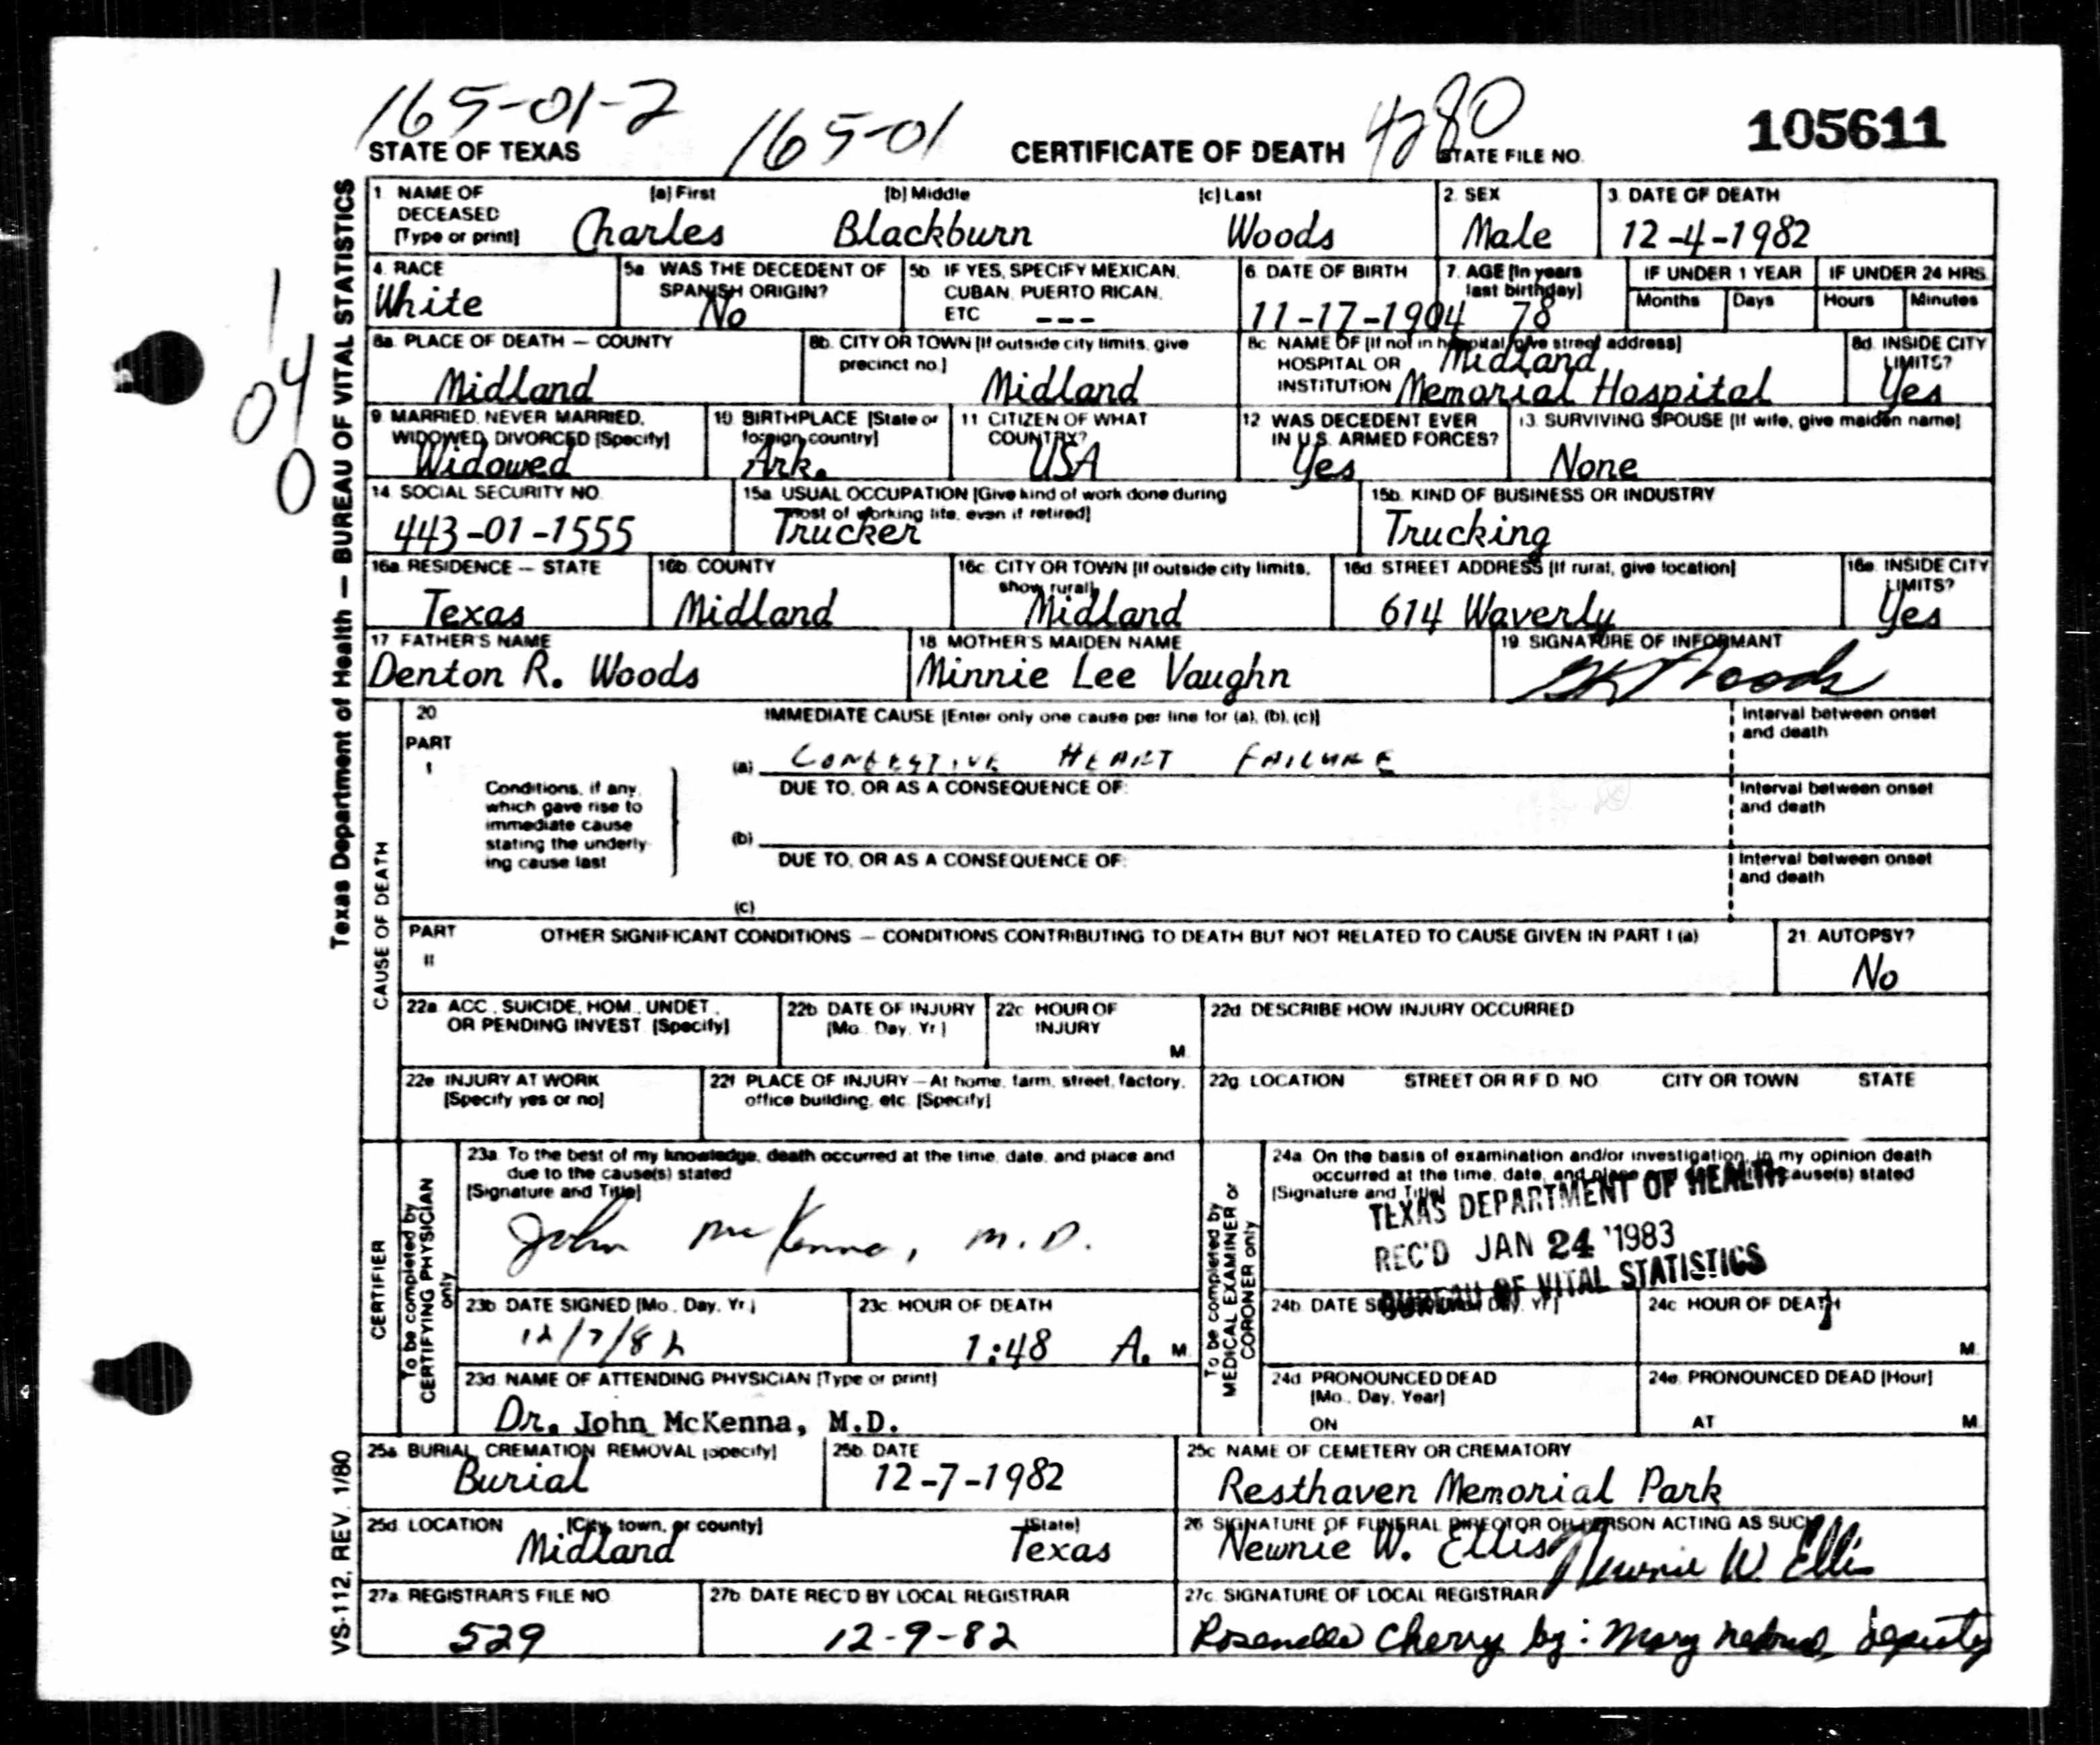 165-01-2 165-01 4280 105611
STATE OF TEXAS CERTIFICATE OF DEATH STATE FILE NO.
Texas Department of Health — BUREAU OF VITAL STATISTICS
1 NAME OF DECEASED [Type or print] (a) First (b) Middle (c) Last 2. SEX 3. DATE OF DEATH
Charles Blackburn Woods Male 12-4-1982
4. RACE 5a. WAS THE DECEDENT OF SPANISH ORIGIN? 5b. IF YES, SPECIFY MEXICAN, CUBAN, PUERTO RICAN, ETC 6. DATE OF BIRTH 7. AGE [In years last birthday] IF UNDER 1 YEAR IF UNDER 24 HRS.
Months Days Hours Minutes
White No --- 11-17-1904 78
8a. PLACE OF DEATH — COUNTY 8b. CITY OR TOWN [If outside city limits, give precinct no.] 8c. NAME OF [If not in hospital, give street address] HOSPITAL OR INSTITUTION 8d. INSIDE CITY LIMITS?
Midland Midland Midland Memorial Hospital Yes
04
0
9 MARRIED, NEVER MARRIED, WIDOWED, DIVORCED [Specify] 10 BIRTHPLACE [State or foreign country] 11 CITIZEN OF WHAT COUNTRY? 12 WAS DECEDENT EVER IN U.S. ARMED FORCES? 13. SURVIVING SPOUSE [If wife, give maiden name]
Widowed Ark. USA Yes None
14 SOCIAL SECURITY NO. 15a. USUAL OCCUPATION [Give kind of work done during most of working life, even if retired] 15b. KIND OF BUSINESS OR INDUSTRY
443-01-1555 Trucker Trucking
16a. RESIDENCE — STATE 16b. COUNTY 16c. CITY OR TOWN [If outside city limits, show rural] 16d. STREET ADDRESS [If rural, give location] 16e. INSIDE CITY LIMITS?
Texas Midland Midland 614 Waverly Yes
17 FATHER'S NAME 18 MOTHER'S MAIDEN NAME 19 SIGNATURE OF INFORMANT
Denton R. Woods Minnie Lee Vaughn Woods
CAUSE OF DEATH
20 IMMEDIATE CAUSE [Enter only one cause per line for (a), (b), (c)] Interval between onset and death
PART I
(a) CONGESTIVE HEART FAILURE
Conditions, if any, which gave rise to immediate cause stating the underlying cause last
DUE TO, OR AS A CONSEQUENCE OF: Interval between onset and death
(b)
DUE TO, OR AS A CONSEQUENCE OF: Interval between onset and death
(c)
PART II OTHER SIGNIFICANT CONDITIONS — CONDITIONS CONTRIBUTING TO DEATH BUT NOT RELATED TO CAUSE GIVEN IN PART I (a) 21. AUTOPSY?
No
22a. ACC., SUICIDE, HOM., UNDET., OR PENDING INVEST. [Specify] 22b. DATE OF INJURY [Mo., Day, Yr.] 22c. HOUR OF INJURY M. 22d. DESCRIBE HOW INJURY OCCURRED
22e. INJURY AT WORK [Specify yes or no] 22f. PLACE OF INJURY — At home, farm, street, factory, office building, etc. [Specify] 22g. LOCATION STREET OR R.F.D. NO. CITY OR TOWN STATE
CERTIFIER
To be completed by CERTIFYING PHYSICIAN only
23a. To the best of my knowledge, death occurred at the time, date, and place and due to the cause(s) stated
[Signature and Title]
John McKenna, M.D.
23b. DATE SIGNED [Mo., Day, Yr.] 23c. HOUR OF DEATH
12/7/82 1:48 A. M.
23d. NAME OF ATTENDING PHYSICIAN [Type or print]
Dr. John McKenna, M.D.
To be completed by MEDICAL EXAMINER or CORONER only
24a. On the basis of examination and/or investigation, in my opinion death occurred at the time, date, and place cause(s) stated
[Signature and Title]
TEXAS DEPARTMENT OF HEALTH
REC'D JAN 24 '1983
BUREAU OF VITAL STATISTICS
24b. DATE SIGNED [Mo., Day, Yr.] 24c. HOUR OF DEATH M.
24d. PRONOUNCED DEAD [Mo., Day, Year] ON 24e. PRONOUNCED DEAD [Hour] AT M.
25a. BURIAL, CREMATION, REMOVAL [specify] 25b. DATE 25c. NAME OF CEMETERY OR CREMATORY
Burial 12-7-1982 Resthaven Memorial Park
25d. LOCATION [City, town, or county] [State] 26. SIGNATURE OF FUNERAL DIRECTOR OR PERSON ACTING AS SUCH
Midland Texas Newnie W. Ellis Newnie W. Ellis
27a. REGISTRAR'S FILE NO. 27b. DATE REC'D BY LOCAL REGISTRAR 27c. SIGNATURE OF LOCAL REGISTRAR
529 12-9-82 Cherry by: Mary deputy
VS-112, REV. 1/80